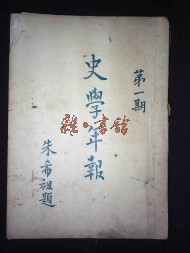 第一期
史學年報
朱希祖題